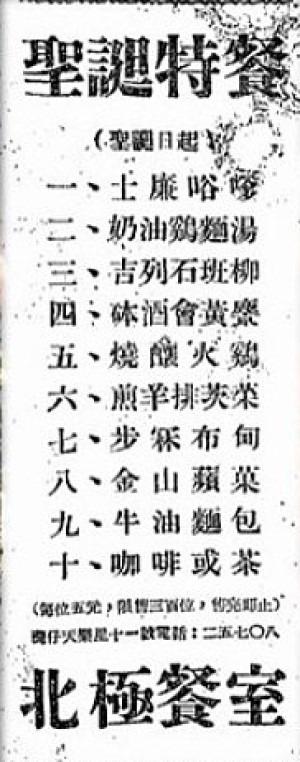 聖誕特餐
(聖誕日起)
一、士廉
二、奶油鷄麵湯
三、吉列石班柳
四、砵酒會黃
五、燒釀火鷄
六、煎羊排莢菜
七、步冧布甸
八、金山蘋菓
九、牛油麵包
十、咖啡或茶
(每位五元，限售三百位，售完即止)
灣仔天樂里十一號電話：二五七〇八
北極餐室